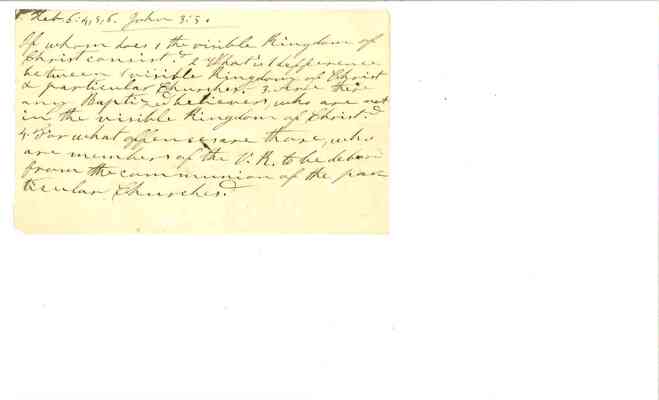 Heb. 6:4,5,6. John 3:5.
Of whom does, the visible Kingdom of
Christ consist? 2 What is difference
between visible Kingdom of Christ
& particular Churches. 3. Are there
any Baptized believers, who are not
in the visible Kingdom of Christ?
4. For what offenses are those, who
are members of the V. K. to be debarred
from the communion of the par
ticular Churches?